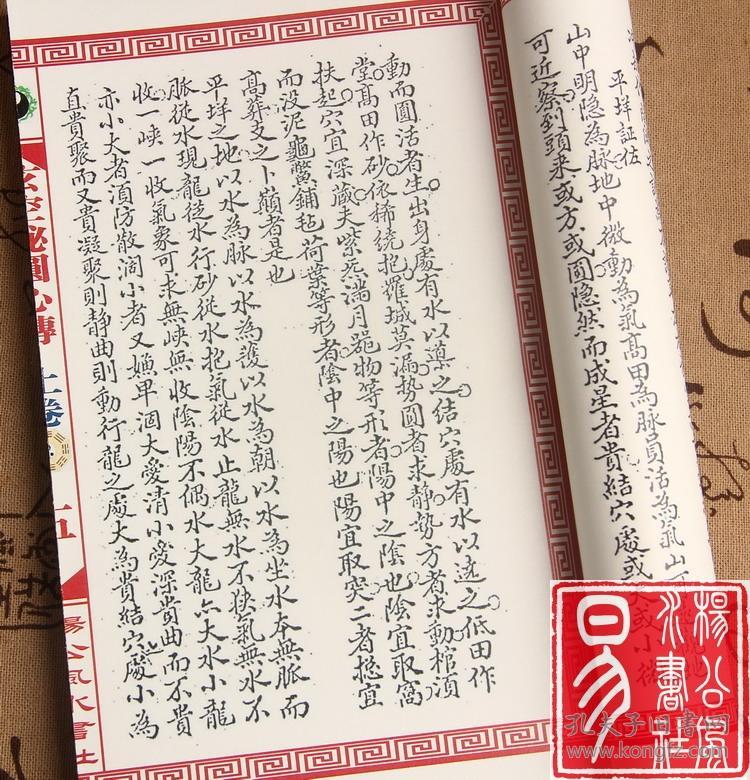 平垟証佐
山中明隐為脉地中微動為氣高田為脉員活為氣山
可近察到頭来或方或圓隐然而成星者貴結穴處或
動而圓活者生出身處有水以導之結穴處有水以遶之低田作
堂高田作砂依稀繞抱羅城莫漏勢圓者求静勢方者求動棺須
扶起穴宜深藏夫紫炁滿月器物等形者陽中之陰也陰宜取窩
而没泥龜鱉鋪毡荷葉等形者陰中之陽也陽宜取突二者揔宜
高葬支之卜巔者是也
平垟之地以水為脉以水為護以水為朝以水為坐水本無脈而
脈從水現龍從水行砂從水抱氣從水止龍無水不狹氣無水不
收一峽一收氣象可求無峽無收陰陽不偶水大龍亦大水小龍
亦小大者須防散濶小者又嫌卑涸大愛清小愛深貴曲而不貴
直貴聚而又貴凝聚則静曲則動行龍之處大為貴結穴之處小為
玄空秘圖心傳 上卷
楊公風水書社
楊公風水書社
易
孔夫子旧书网
www.kongfz.com